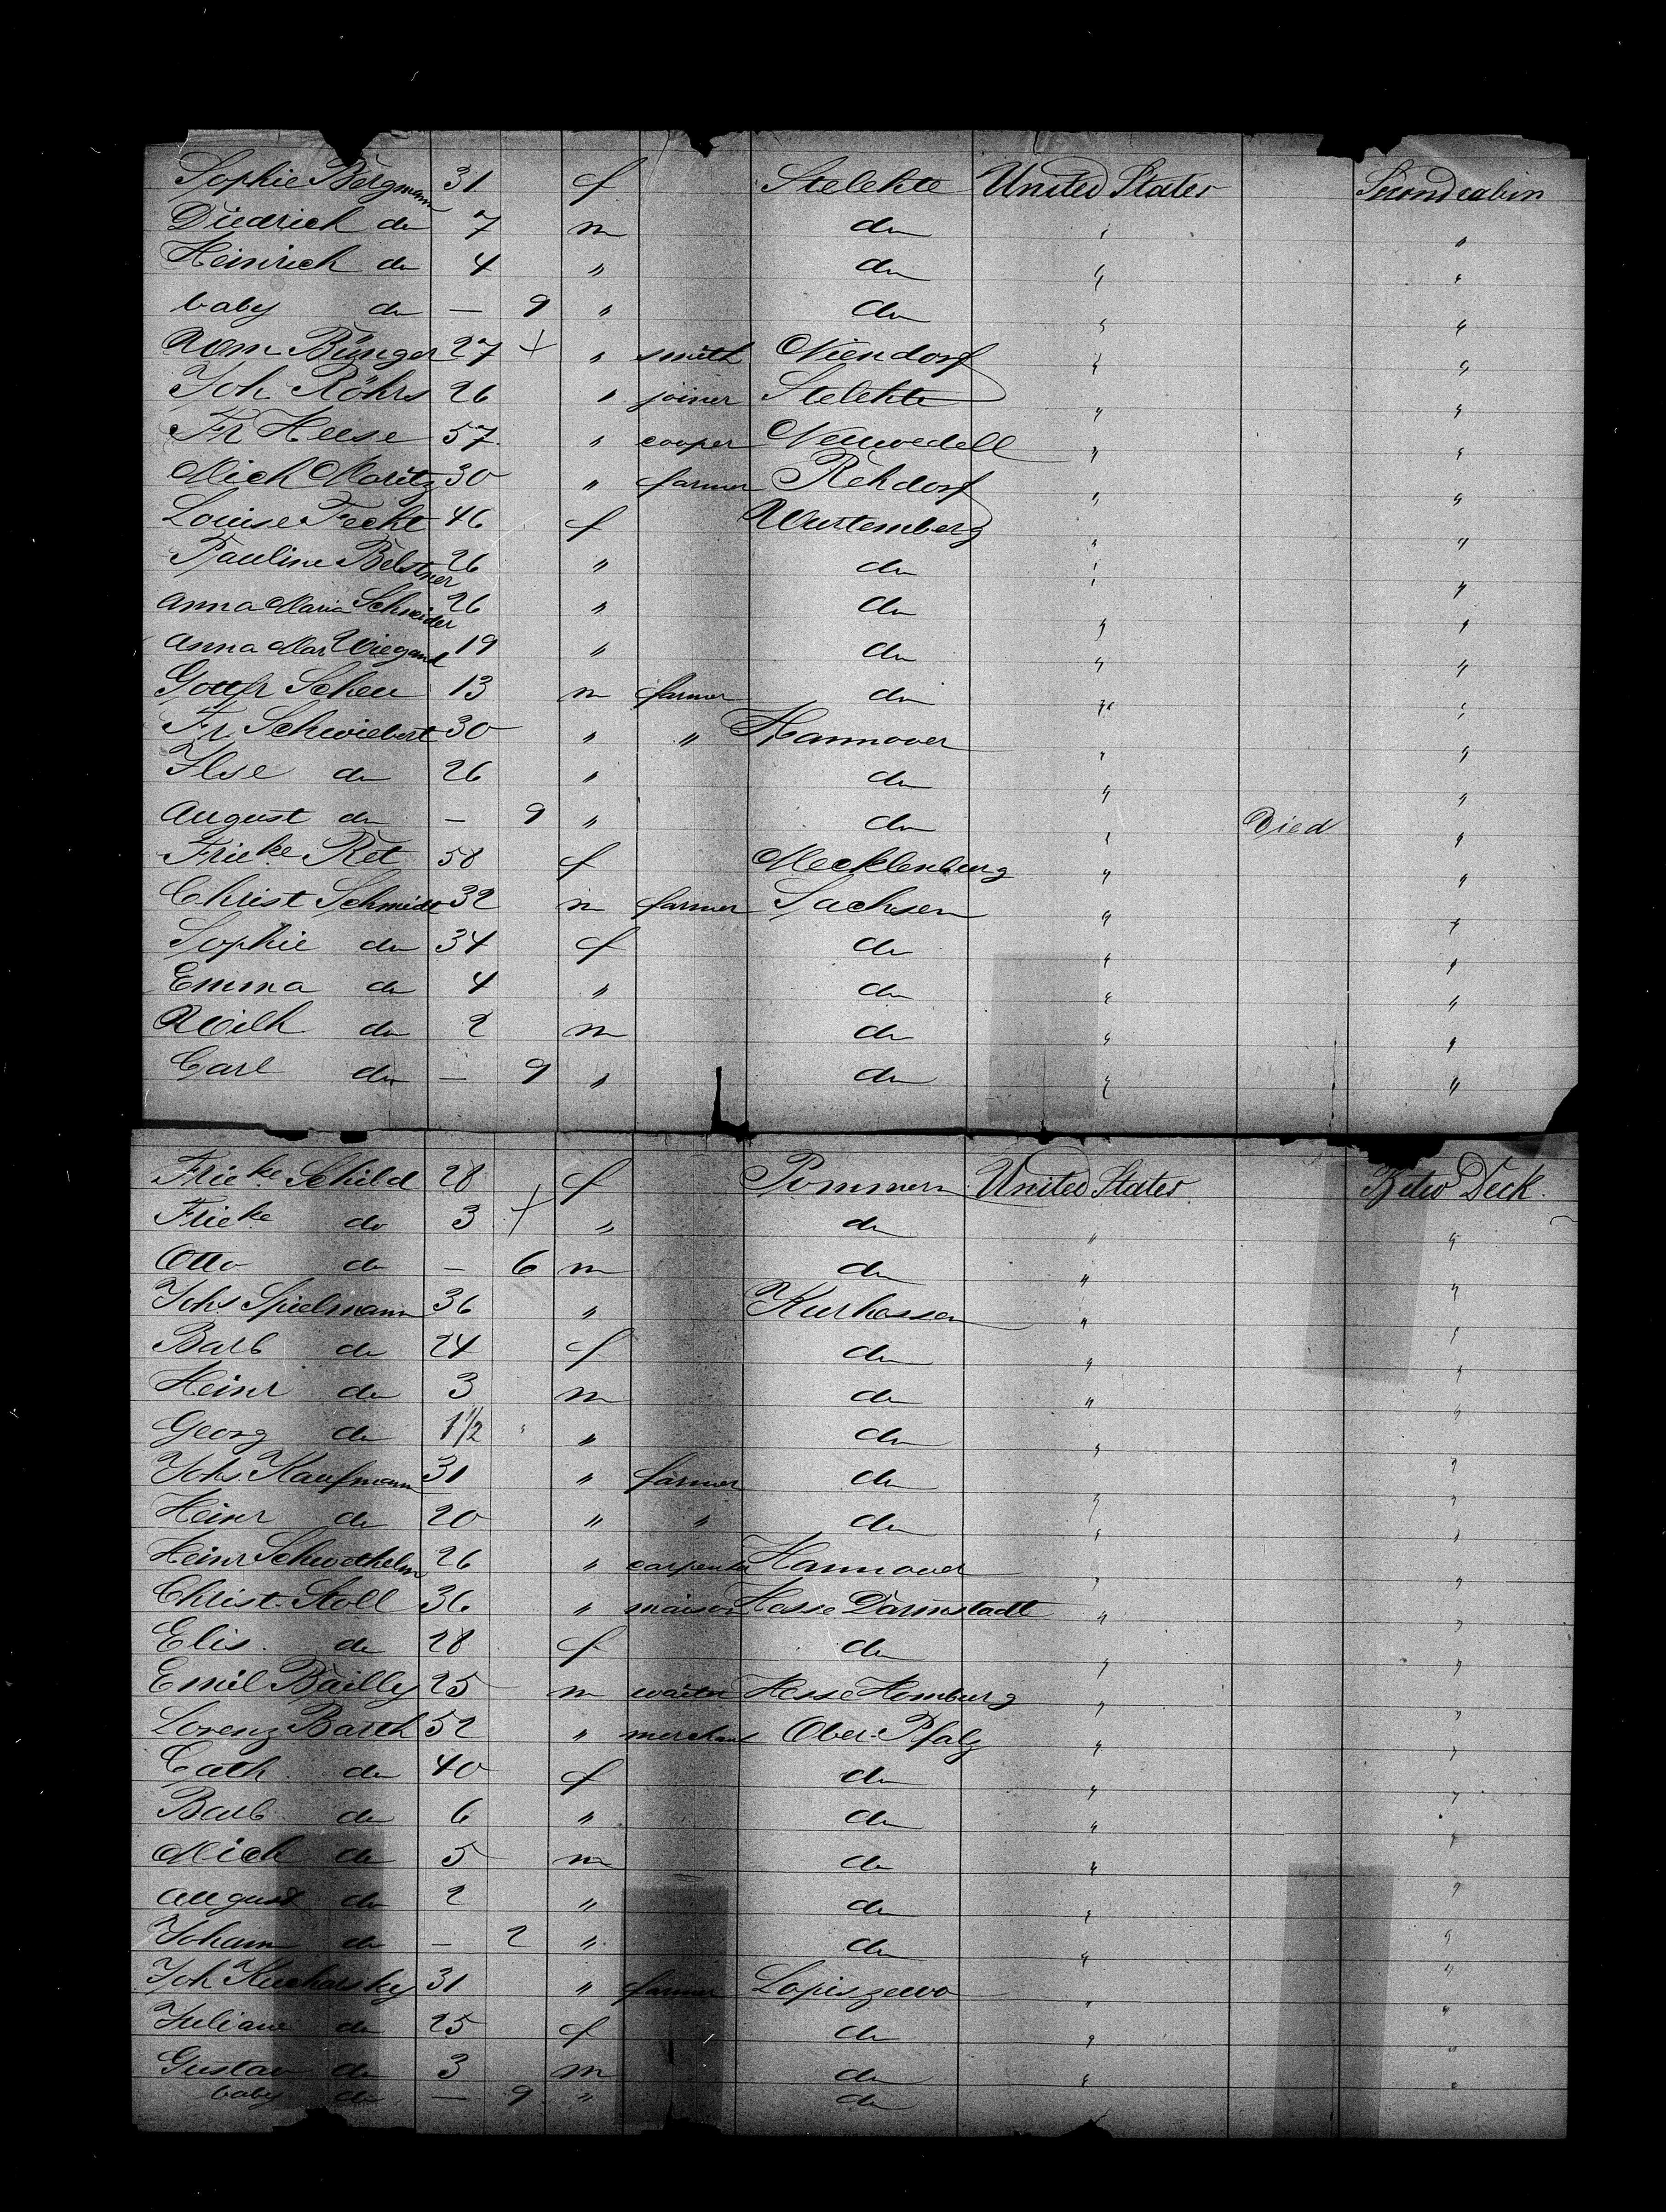 Sophie Bergmann 31 f Stelehte United States Second cabin
Diedrich do 7 m do " "
Heinrich do 4 " do " "
baby do — 9 " do " "
Wm Bünger 27 + " smith Niendorf " "
Joh Röhrs 26 " joiner Stelehte " "
Fr Heese 57 " cooper Neuwedell " "
Mich Moritz 30 " farmer Rehdorf " "
Louise Fecht 46 f Wurtemberg " "
Pauline Belstner 26 " do " "
Anna Maria Schneider 26 " do " "
Anna Mar Wiegand 19 " do " "
Gottfr Scheu 13 m farmer do " "
Fr. Schwiebert 30 " " Hannover " "
Ilse do 26 " do " "
August do — 9 " do " Died "
Frieke Ret 58 f Mecklenburg " "
Christ Schmidt 32 m farmer Sachsen " "
Sophie do 34 f do " "
Emma do 4 " do " "
Wilh do 2 m do " "
Carl do — 9 " do " "
Frieke Schild 28 f Pommern United States Betw Deck.
Frieke do 3 + " do " "
Otto do — 6 m do " "
Johs Spielmann 36 " Kurhessen " "
Barb do 24 f do " "
Heinr do 3 m do " "
Georg do 1 1/2 " do " "
Johs. Kaufmann 31 " farmer do " "
Heinr do 20 " " do " "
Heinr Schwethelm 26 " carpenter Hannover " "
Christ. Stoll 36 " maison Hesse Darmstadt " "
Elis. do 28 f do " "
Emil Bailly 25 m waiter Hesse Homburg " "
Lorenz Barth 52 " merchant Ober-Pfalz " "
Cath. do 40 f do " "
Barb do 6 " do " "
Mich do 5 m do " "
August do 2 " do " "
Johann do — 2 " do " "
Joh Kucharsky 31 " farmer Lopiszewo " "
Juliane do 25 f do " "
Gustav do 3 m do " "
baby do — 9 " do